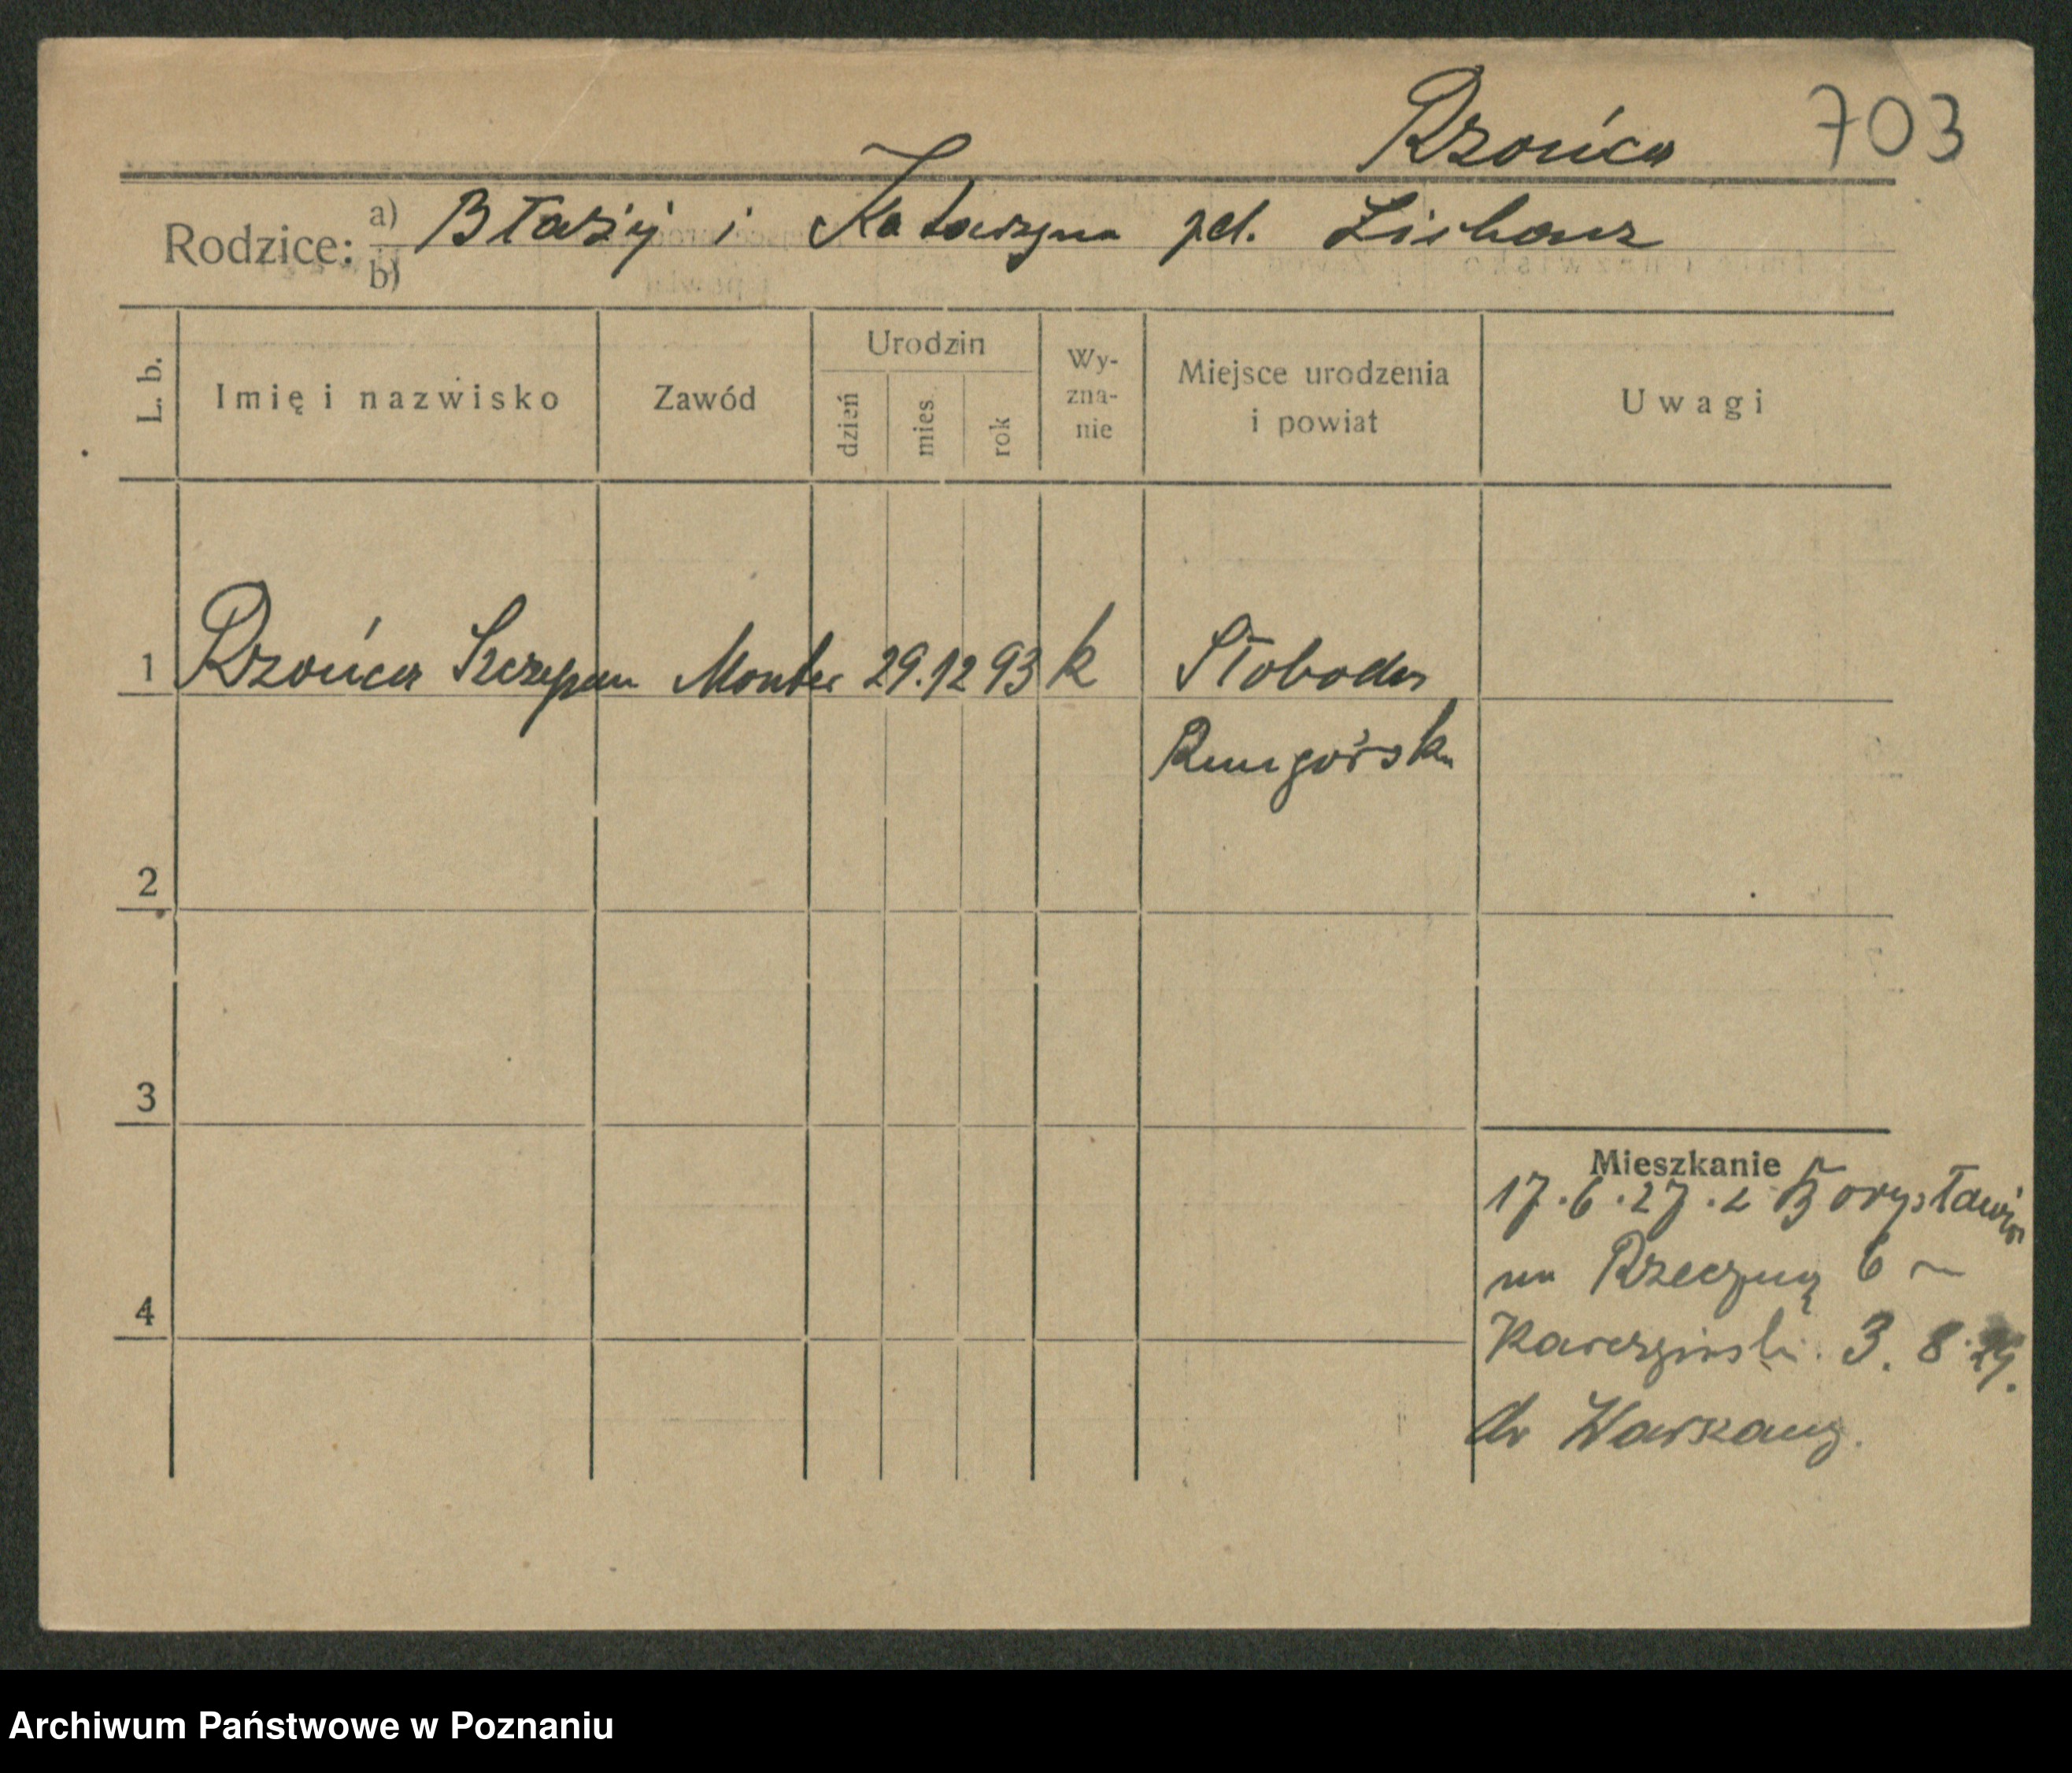 Rzońca 703
Rodzice: a) Błażij i Katarzyna zd. Lichorz
b)
L. b.
Imię i nazwisko
Zawód
Urodzin
dzień
mies.
rok
Wy-
zna-
nie
Miejsce urodzenia
i powiat
Uwagi
1 Rzońca Szczepan Monter 29.12 93 k Słoboda
Rungórska
2
3
Mieszkanie
17.6.27. z Borysławia
na Rzeczną 6
4
3. 8. 29.
do Warszawy.
Archiwum Państwowe w Poznaniu